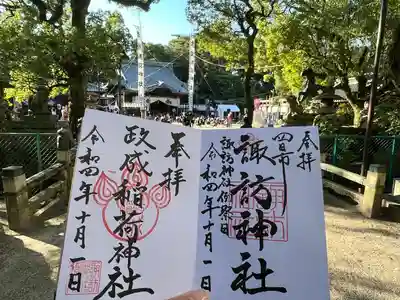 奉拝
四日市
諏訪神社
諏訪神社例祭日
令和四年十月一日
奉拝
政成稲荷神社
令和四年十月一日